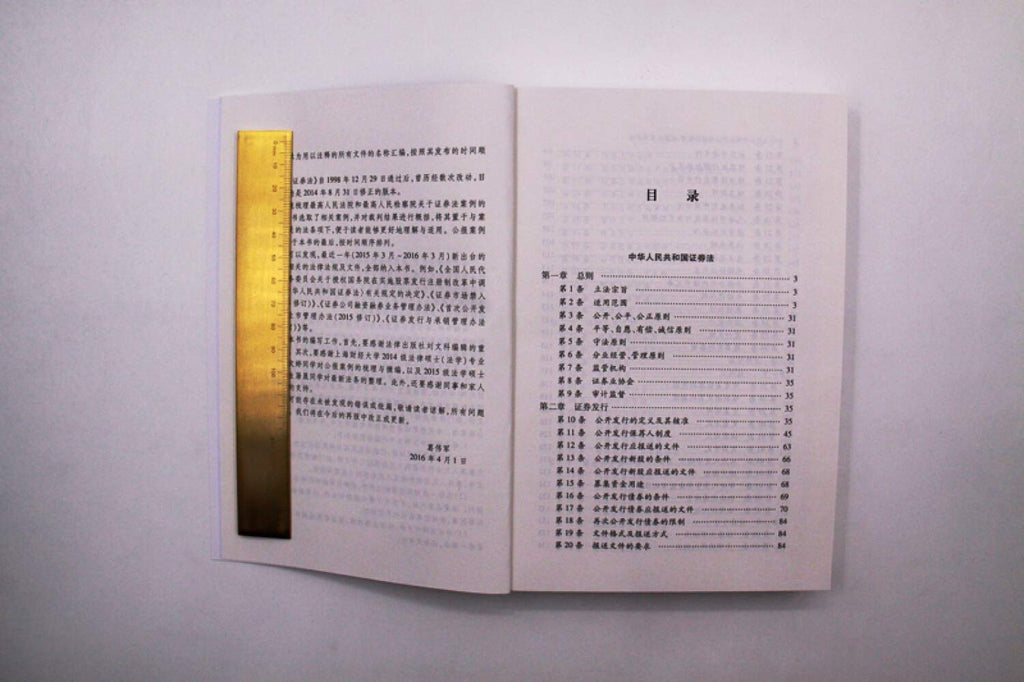 为用以注释的所有文件的名称汇编,按照其发布的时间顺
证券法》自1998年12月29日通过后,曾历经数次改动,目
是2014年8月31日修正的版本。
梳理最高人民法院和最高人民检察院关于证券法案例的
书选取了相关案例,并对裁判结果进行概括,将其置于与案
的法条项下,便于读者能够更好地理解与适用。公报案例
于本书的最后,按时间顺序排列。
以发现,最近一年(2015年3月-2016年3月)新出台的
相关的法律法规及文件,全部纳入本书。例如,《全国人民代
委员会关于授权国务院在实施股票发行注册制改革中调
华人民共和国证券法〉有关规定的决定》、《证券市场禁入
修订)》、《证券公司融资融券业务管理办法》、《首次公开发
市管理办法(2015修订)》、《证券发行与承销管理办法
)》等。
本书的编写工作,首先,要感谢法律出版社刘文科编辑的
其次,要感谢上海财经大学2014级法律硕士(法学)专业
婷同学对公报案例的梳理与摘编,以及2015级法学硕士
晟同学对最新法条的整理。此外,还要感谢同事和家人
的支持。
可能存在未被发现的错误或纰漏,敬请读者谅解,所有问题
我们将在今后的再版中改正或更新。
葛伟军
2016年4月1日
目 录
中华人民共和国证券法
第一章 总则 3
第1条 立法宗旨 3
第2条 适用范围 3
第3条 公开、公平、公正原则 31
第4条 平等、自愿、有偿、诚信原则 31
第5条 守法原则 31
第6条 分业经营、管理原则 31
第7条 监管机构 31
第8条 证券业协会 35
第9条 审计监督 35
第二章 证券发行 35
第10条 公开发行的定义及其核准 35
第11条 公开发行保荐人制度 45
第12条 公开发行应报送的文件 63
第13条 公开发行新股的条件 66
第14条 公开发行新股应报送的文件 68
第15条 募集资金用途 68
第16条 公开发行债券的条件 69
第17条 公开发行债券应报送的文件 70
第18条 再次公开发行债券的限制 84
第19条 文件格式及报送方式 84
第20条 报送文件的要求 84